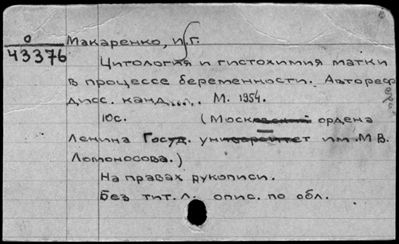 О
43376
Макаренко, И.Г.
Цитология и гистохимия матки
в процессе беременности. Автореф
дисс. канд..... М. 1954.
10с. (Московский ордена
Ленина Госуд. университет им. М В.
Ломоносова.)
На правах рукописи.
Без тит. л. опис. по обл.